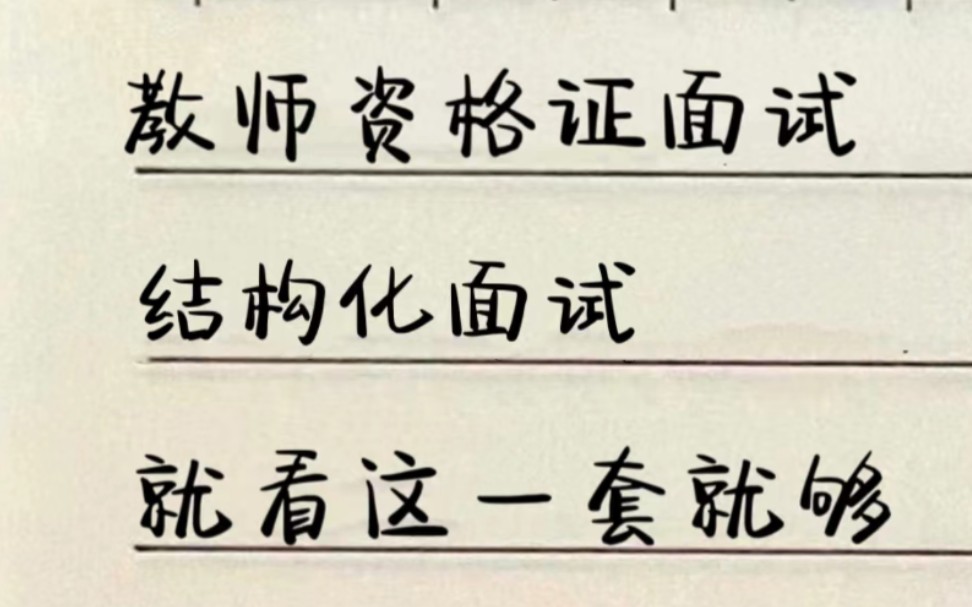 教师资格证面试
结构化面试
就看这一套就够